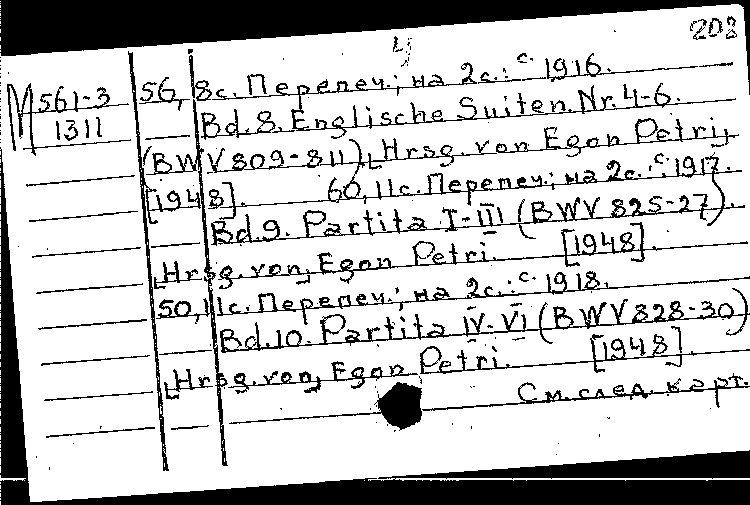 4
203
М 561-3
1311
56, 8с. Перепеч.; на 2с.: c 1916.
Bd.8. Englische Suiten. Nr. 4-6.
(BWV 809-811) [Hrsg. von Egon Petri]
[1948]. 60, 11с. Перепеч.; на 2с.: c 1917.
Bd.9. Partita I-III (BWV 825-27).
[Hrsg. von] Egon Petri. [1948].
50, 11с. Перепеч.; на 2с.: c 1918.
Bd.10. Partita IV-VI (BWV 828-30)
[Hrsg. von] Egon Petri. [1948].
См. след. карт.